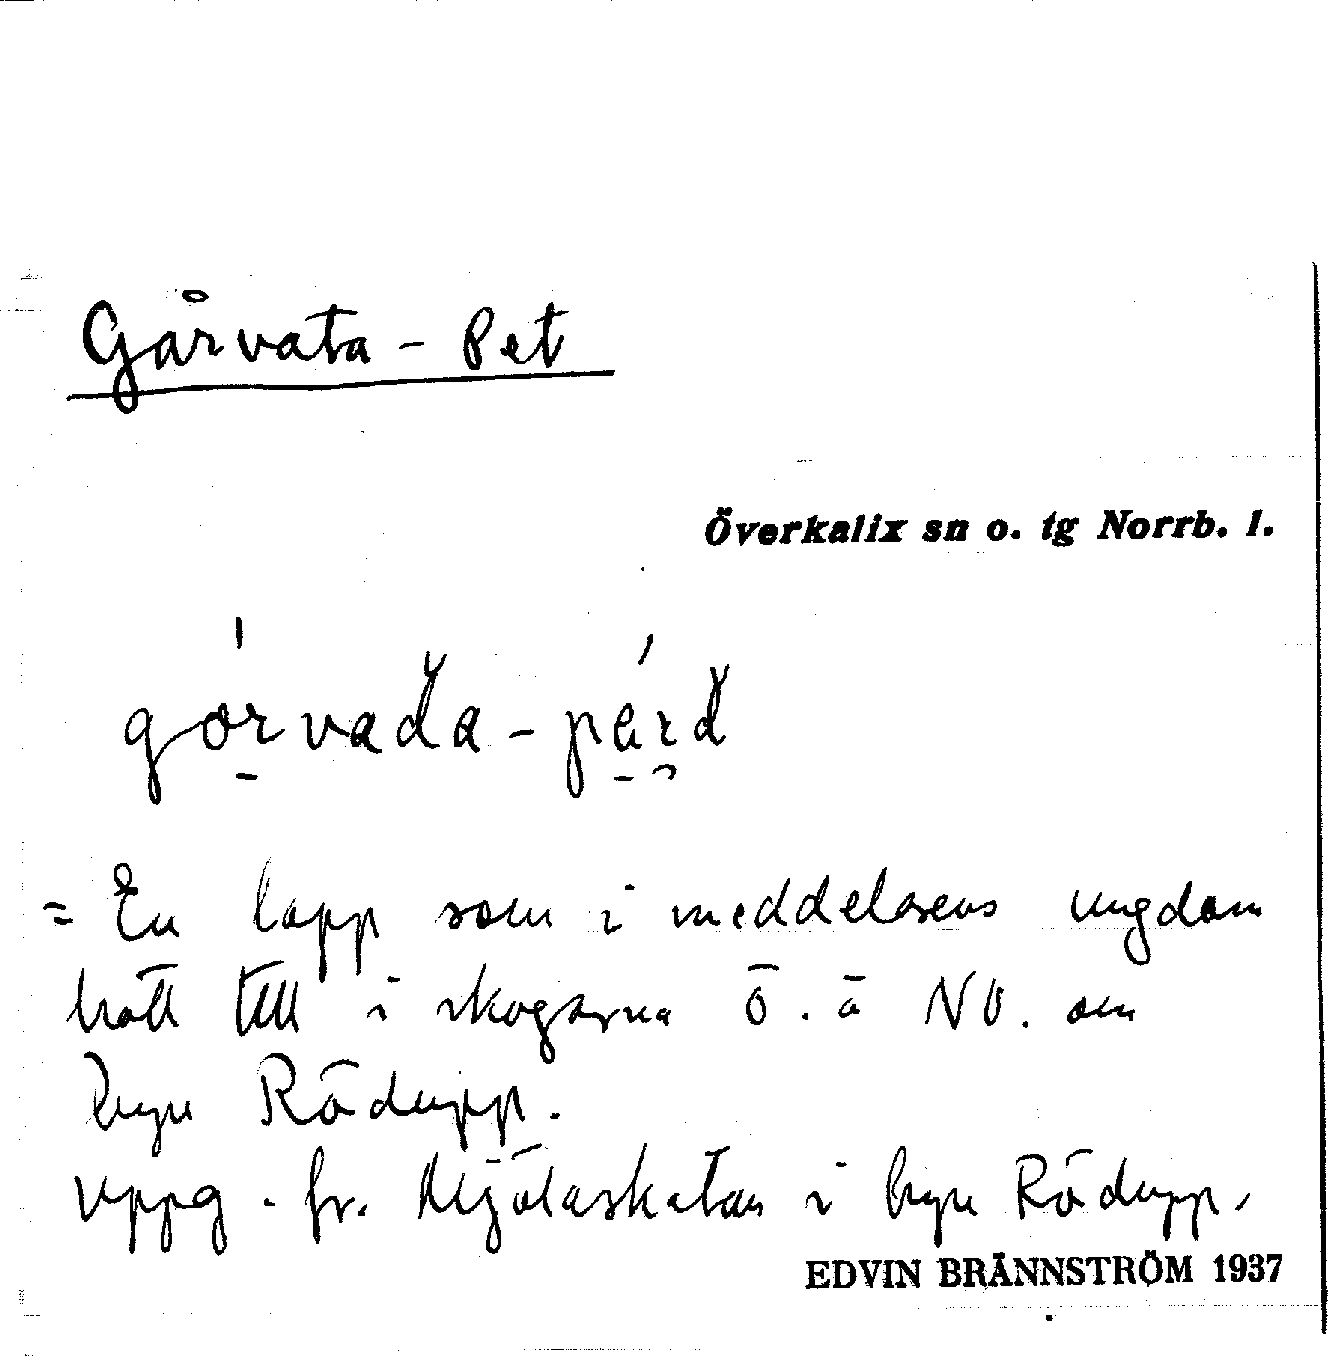 Gårvata - Pet
Överkalix sn o. tg Norrb. l.
= En lapp som i meddelarens ungdom
hållt till i skogarna Ö. å NO. om
byn Rödupp.
Uppg. fr. Mjölaskatan i byn Rödupp.
EDVIN BRÄNNSTRÖM 1937